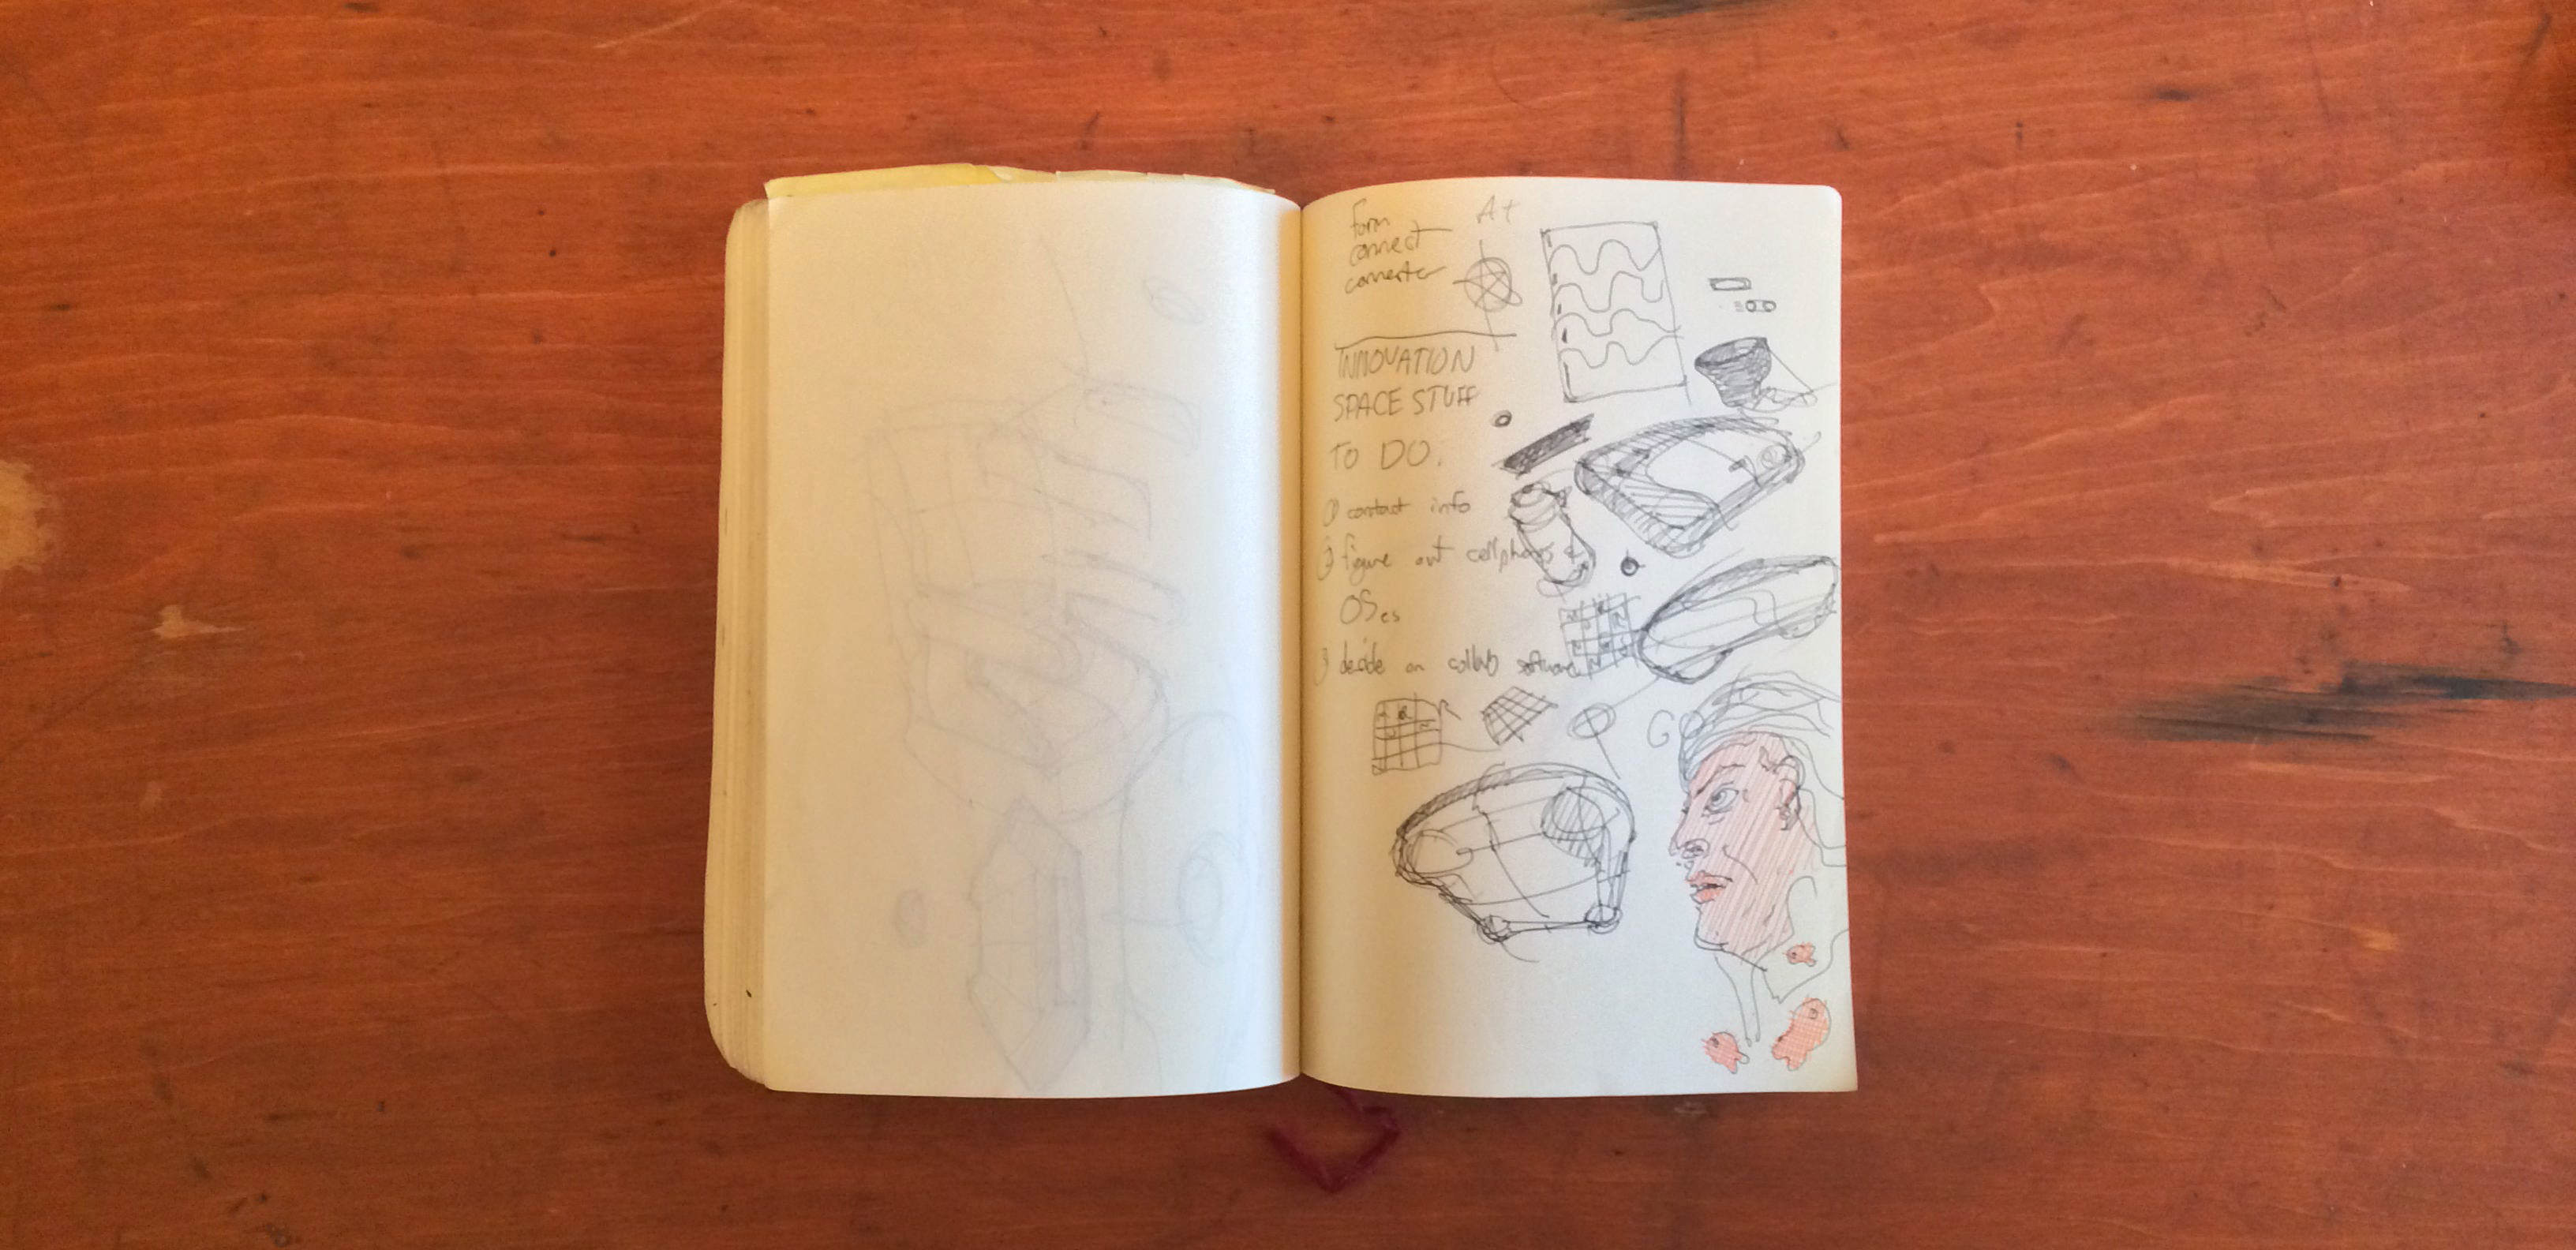 form
connect
connector
A+
INNOVATION
SPACE STUFF
TO DO:
① contact info
② figure out cellphones &
OSes
3) decide on collab software